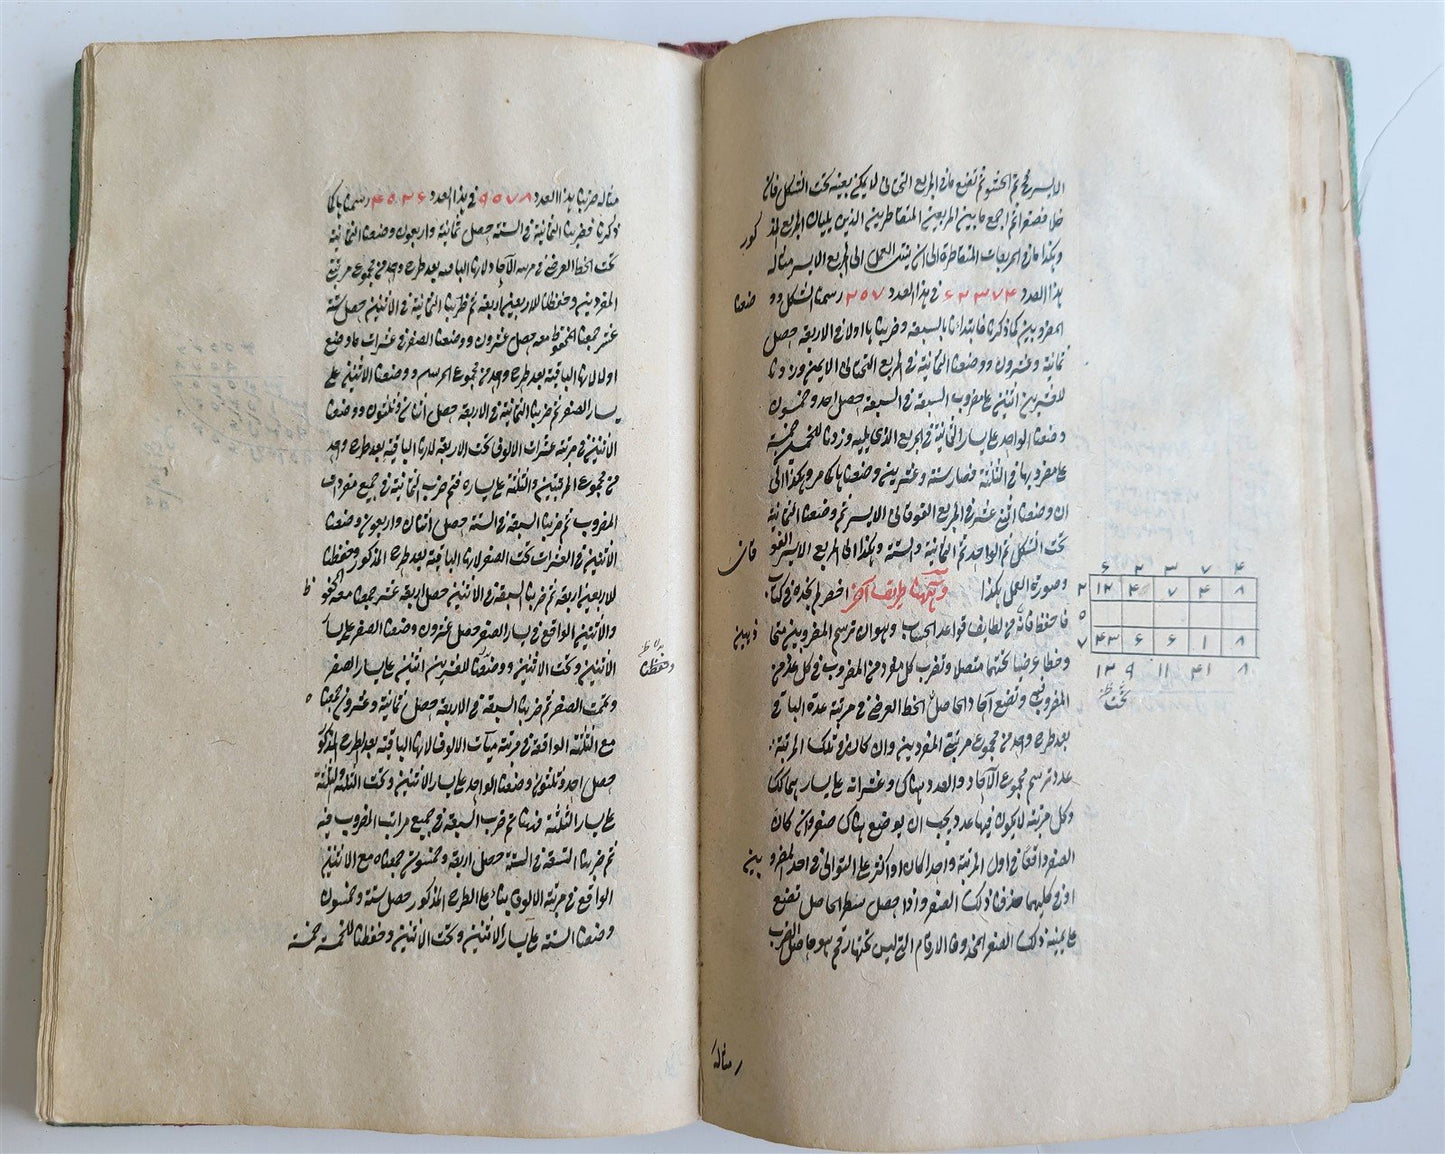 الايسر ثم الحشو ثم تضع ما فى المربع التحتانى لا يمكن بعينه تحت الشكل فان
خلا فصفرا ثم اجمع ما بين المربعين المتقاطرين الذين يليان المربع المذ
كور
وهكذا ما فى المربعات المتقاطرة الى ان ينتهى العمل الى المربع الايسر مثاله
هذا العدد ۶۲۳۷۴ فى هذا العدد ۲۵۷ رسمنا الشكل وو
ضعنا
المضروبين كما ذكرنا فابتدأنا بالسبعة وضربناها اولا فى الاربعة حصل
ثمانية وعشرون ووضعنا الثمانية فى المربع التحتانى الايمن وزدنا
للعشرين اثنين على مضروب السبعة فى السبعة حصل احد وخمسون
وضعنا الواحد على يسار الثمانية فى المربع الذى يليه وزدنا للخمسين خمسة
على مضروبها فى الثلثة فصار ستة وعشرين وضعناها كما مر وهكذا الى
ان وضعنا اثنى عشر فى المربع الفوقانى الايسر ثم وضعنا الثمانية
تحت الشكل ثم الواحد ثم الثمانية والستة وهكذا الى المربع الايسر الفو
قانى
وصورة العمل هكذا وههنا طريق آخر اخصر لم نجده فى كتاب
فاحفظ فانه من لطايف قواعد الحساب وهو ان ترسم المضروبين متحا
ذيين
وخطا عرضيا تحتهما متصلا وتضرب كل مفرد من المضروب فى كل مفرد من
المضروب فيه وتضع آحاد الحاصل تحت الخط العرضى فى مرتبة عدة الباقى
بعد طرح واحد من مجموع مرتبتى المفردين وان كان فى تلك المرتبة
عدد ترسم مجموع الآحاد والعدد هناك وعشراته على يسار هنالك
وكل مرتبة لا يكون فيها عدد يجب ان يوضع هناك صفر وان كان
الصفر واقعا فى اول المرتبة واحدا كان او اكثر على التوالى فى احد المضرو
بين
او فى كليهما حذفنا ذلك الصفر واذا حصل سطر الحاصل تضع
على يمينه ذلك الصفر المحذوف فالارقام التى ليس تحتها رقم هو حاصل الضرب
۶ ۲ ۳ ۷ ۴
۲ ۱۲ ۴ ۷ ۴ ۸
۵
۷ ۴۳ ۶ ۶ ۱ ۸
۱۲ ۹ ۱۱ ۴۱ ۸
تحت
مثاله
مثاله ضربنا هذا العدد ۹۵۷۸ فى هذا العدد ۴۵۲۶ رسمناها كما
ذكرنا فضربنا الثمانية فى الستة حصل ثمانية واربعون وضعنا الثمانية
تحت الخط العرضى فى مرتبة الآحاد لانها الباقية بعد طرح واحد من مجموع مرتبتى
المفردين وحفظنا للاربعين اربعة ثم ضربنا الثمانية فى الاثنين حصل ستة
عشر جمعنا المحفوظ معه حصل عشرون ووضعنا الصفر فى عشرات ما وضع
اولا لانها الباقية بعد طرح واحد من مجموع المرتبتين ووضعنا الاثنين على
يسار الصفر ثم ضربنا الثمانية فى الاربعة حصل اثنان وثلثون ووضعنا
الاثنين فى مرتبة عشرات الالوف تحت الاربعة لانها الباقية بعد طرح واحد
من مجموع المرتبتين والثلثة على يساره فتم ضرب الثمانية فى جميع مفردات
المضروب ثم ضربنا السبعة فى الستة حصل اثنان واربعون وضعنا
الاثنين فى العشرات تحت الصفر لانها الباقية بعد طرح المذكور وحفظنا
للاربعين اربعة ثم ضربنا السبعة فى الاثنين حصل اربعة عشر جمعنا معه المحفو
ظ
والاثنين الواقع فى يسار الصفر حصل عشرون وضعنا الصفر على يسار
الاثنين وتحت الاثنين ووضعنا للعشرين اثنين على يسار الصفر
وحفظنا
وتحت الصفر ثم ضربنا السبعة فى الاربعة حصل ثمانية وعشرون جمعنا
ه
مع الثلثة الواقعة فى مرتبة ميآت الالوف لانها الباقية بعد الطرح المذكور
حصل احد وثلثون وضعنا الواحد على يسار الاثنين وتحت الثلثة والثلثة
على يسار الثلثة فهنا تم ضرب السبعة فى جميع مراتب المضروب فيه
ثم ضربنا التسعة فى الستة حصل اربعة وخمسون جمعناه مع الاثنين
الواقع فى مرتبة الالوف بناء على الطرح المذكور حصل ستة وخمسون
وضعنا الستة على يسار الاثنين وتحت الاثنين وحفظنا للخمسة خمسة